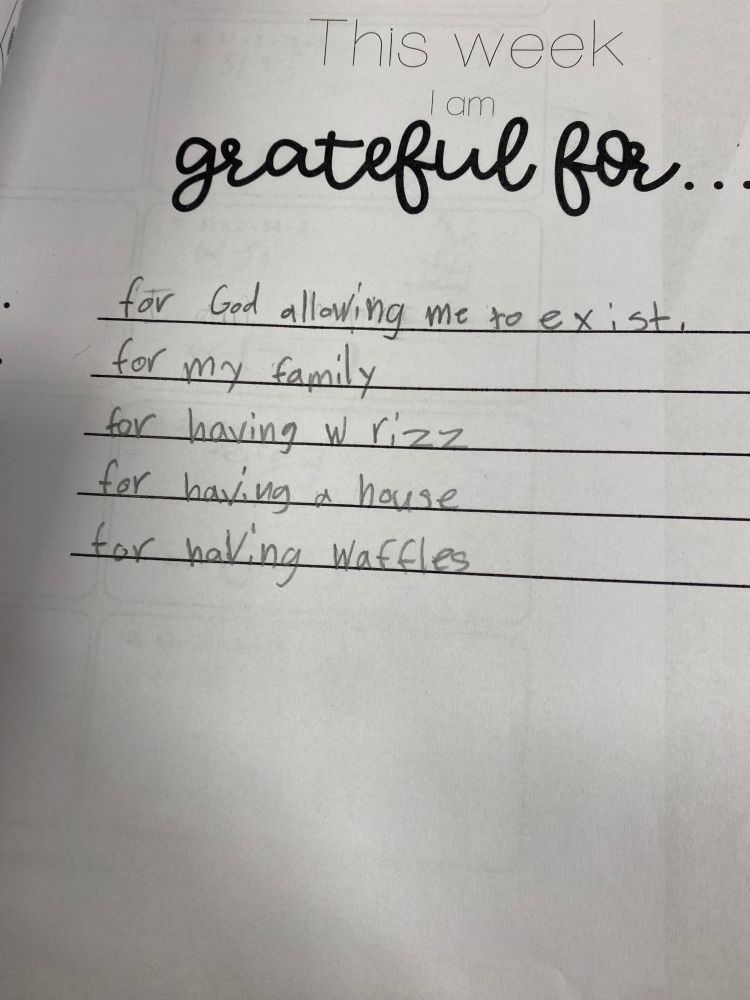 This week
I am
grateful for...
for God allowing me to exist.
for my family
for having W rizz
for having a house
for having waffles